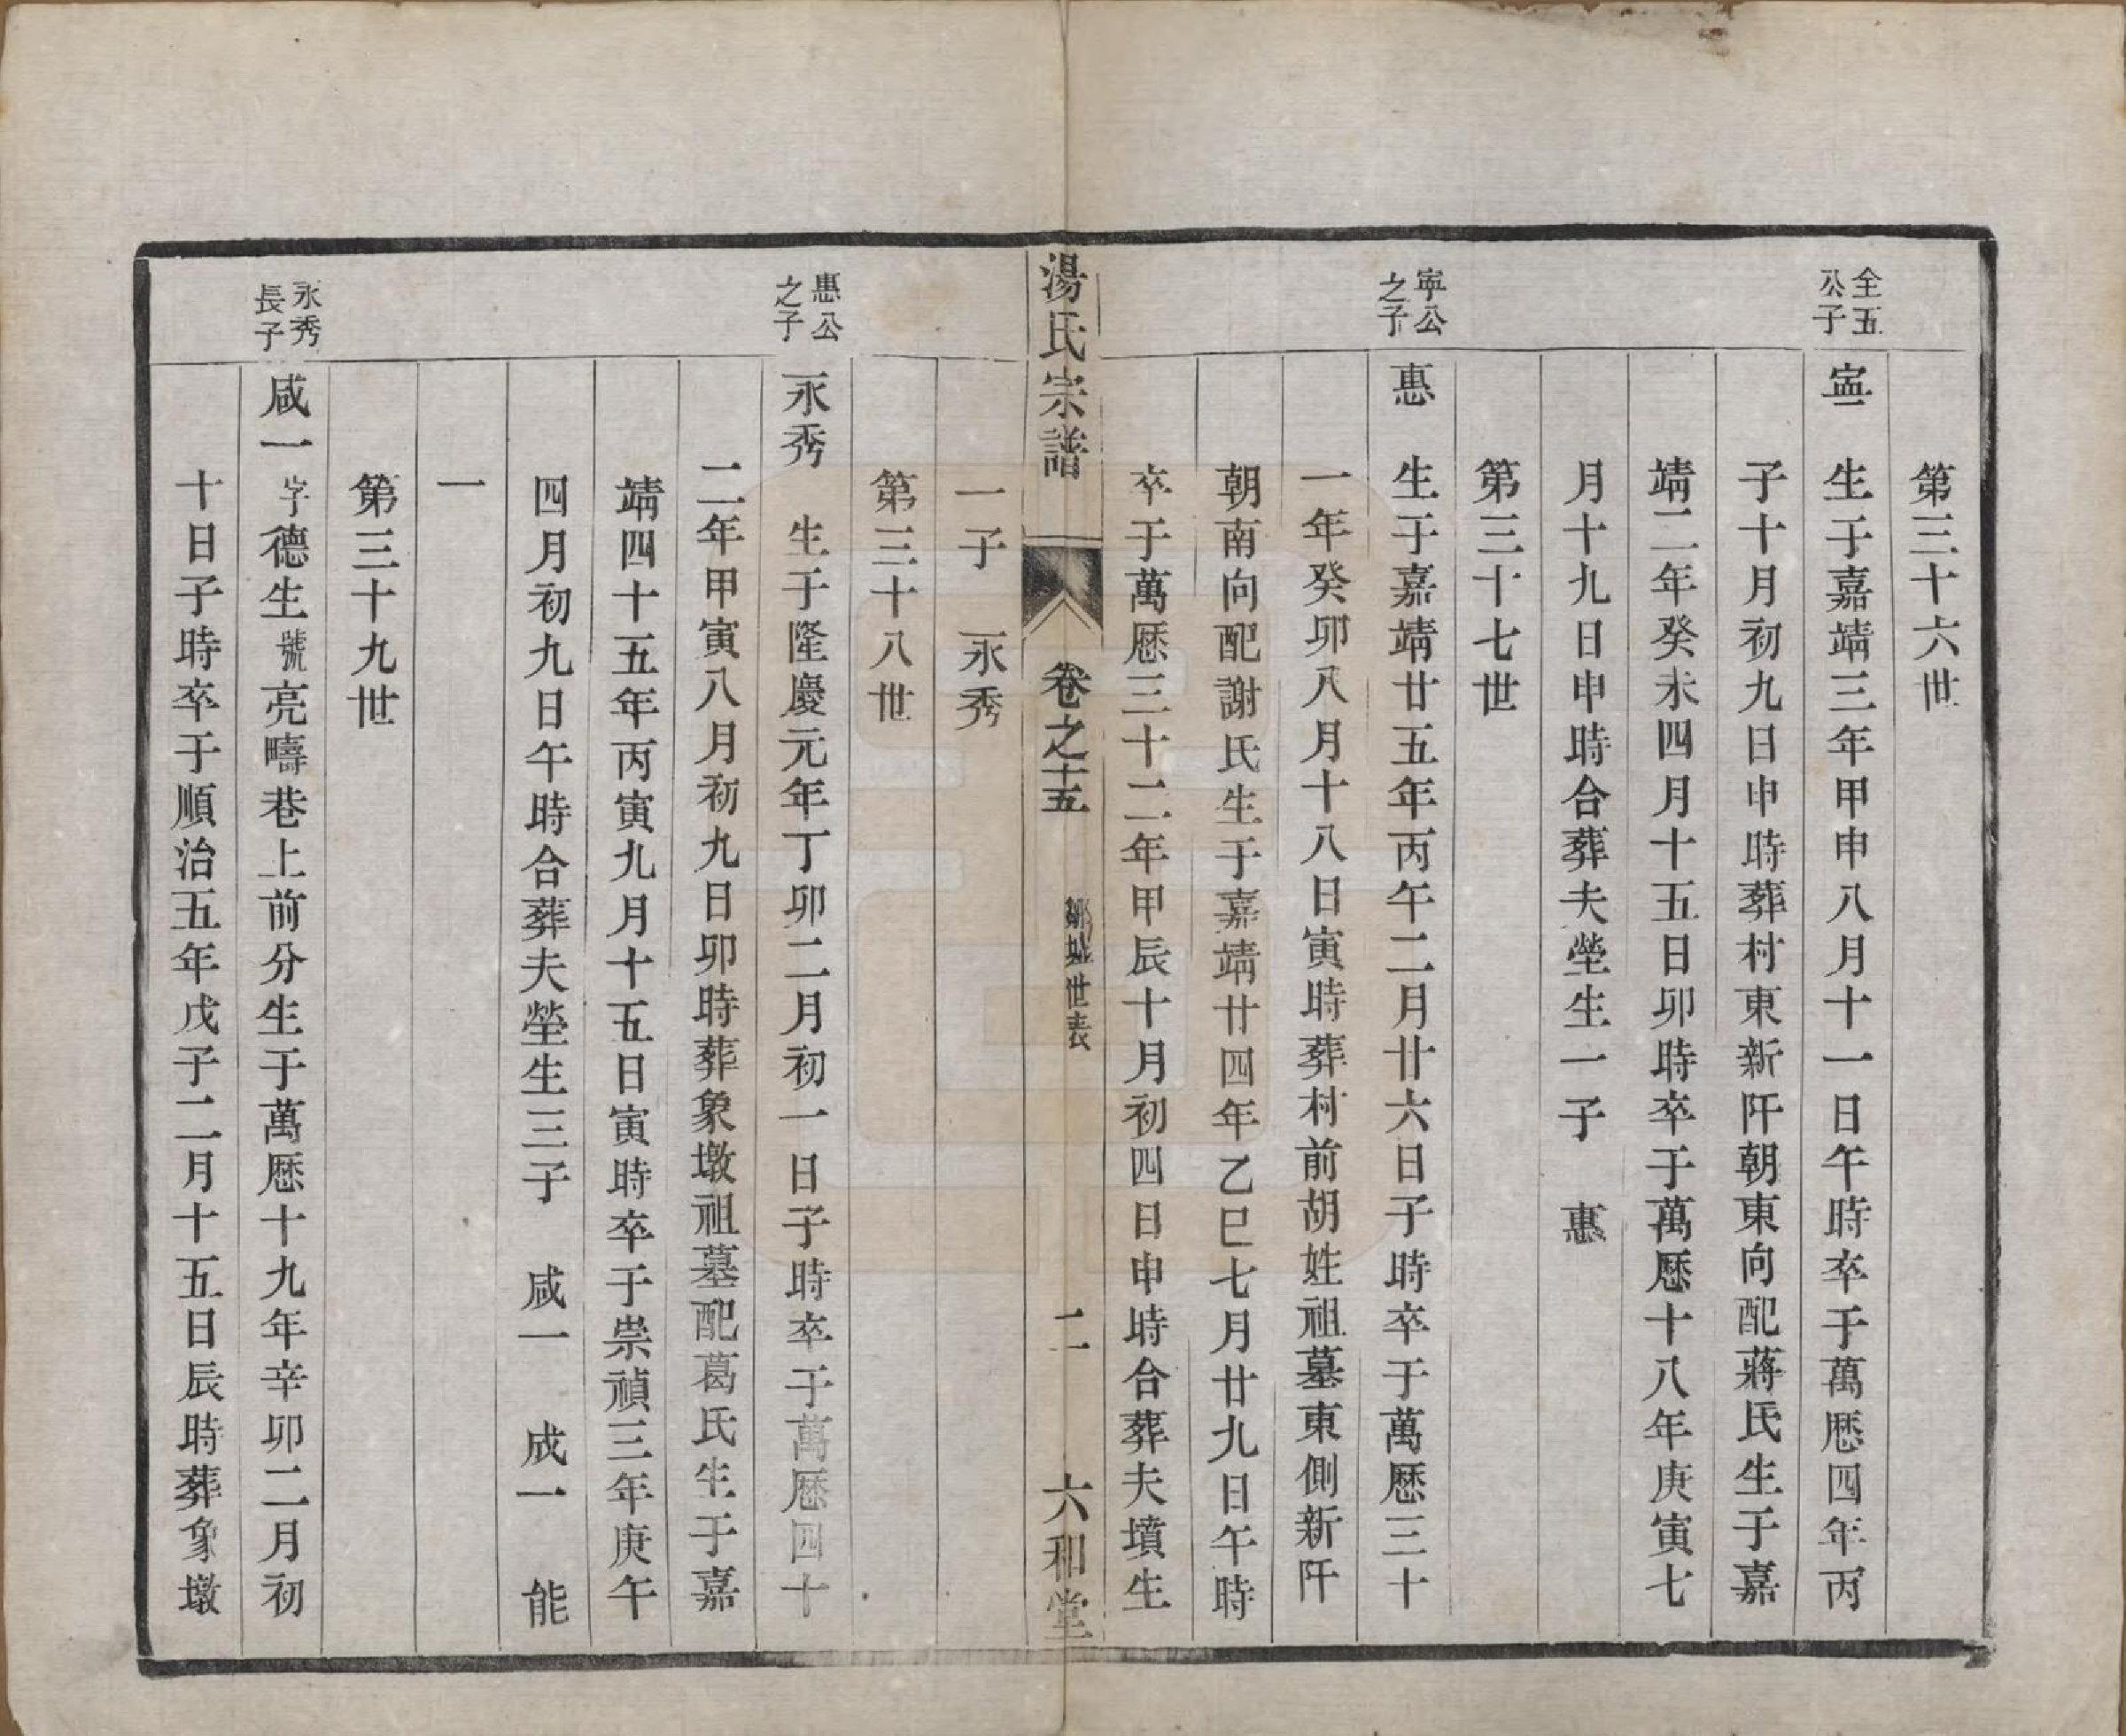 第三十六世
全五公子
寍 生于嘉靖三年甲申八月十一日午時卒于萬厯四年丙
子十月初九日申時葬村東新阡朝東向配蔣氏生于嘉
靖二年癸未四月十五日卯時卒于萬厯十八年庚寅七
月十九日申時合葬夫塋生一子 惠
第三十七世
寧公之子
惠 生于嘉靖廿五年丙午二月廿六日子時卒于萬厯三十
一年癸卯八月十八日寅時葬村前胡姓祖墓東側新阡
朝南向配謝氏生于嘉靖廿四年乙巳七月廿九日午時
卒于萬厯三十二年甲辰十月初四日申時合葬夫墳生
一子 永秀
湯氏宗譜 卷之十五 鄒墟世表 二 六和堂
第三十八世
惠公之子
永秀 生于隆慶元年丁卯二月初一日子時卒于萬厯四十
二年甲寅八月初九日卯時葬象墩祖墓配葛氏生于嘉
靖四十五年丙寅九月十五日寅時卒于崇禎三年庚午
四月初九日午時合葬夫塋生三子 咸一 成一 能
一
第三十九世
永秀長子
咸一 字德生號亮疇巷上前分生于萬厯十九年辛卯二月初
十日子時卒于順治五年戊子二月十五日辰時葬象墩